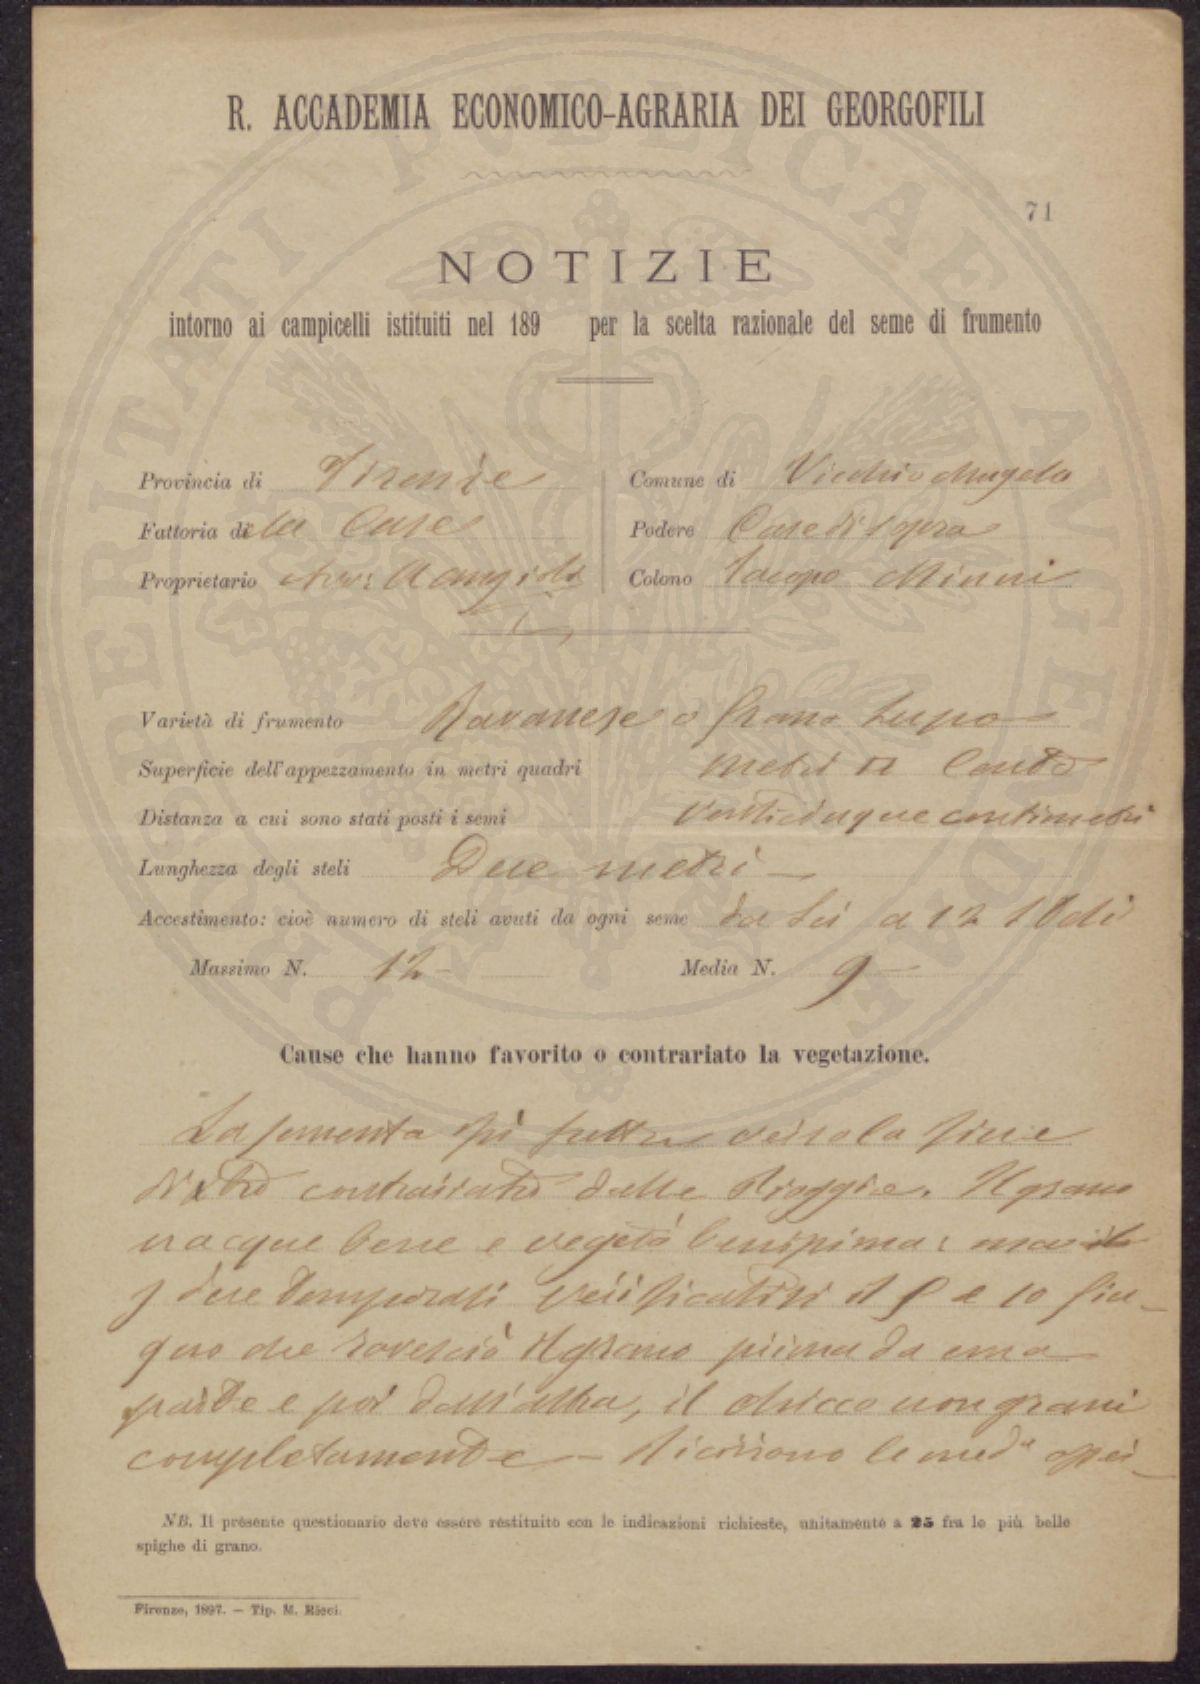 R. ACCADEMIA ECONOMICO-AGRARIA DEI GEORGOFILI
71
NOTIZIE
intorno ai campicelli istituiti nel 189 per la scelta razionale del seme di frumento
Provincia di Firenze
Comune di Vicchio Mugello
Fattoria delle Case
Podere Case di sopra
Proprietario
Colono Jacopo Minni
Varietà di frumento Ravanese o Grano Lupo
Superficie dell'appezzamento in metri quadri Metri □ Cento
Distanza a cui sono stati posti i semi Venticinque centimetri
Lunghezza degli steli Due metri —
Accestimento: cioè numero di steli avuti da ogni seme da sei a 12 steli
Massimo N. 12 —
Media N. 9 —
Cause che hanno favorito o contrariato la vegetazione.
La sementa fu fatta verso la fine
di 8bre contrariata dalle Pioggie. Il grano
nacque bene e vegetò benissimo: ma
i due temporali verificatisi il 8 e 10 Giu-
gno che rovesciò il grano prima da una
parte e poi dall'altra, il chicco non granì
completamente — Ricorrono le med.e
NB. Il presente questionario deve essere restituito con le indicazioni richieste, unitamente a 25 fra le più belle
spighe di grano.
Firenze, 1897. — Tip. M. Ricci.
PROSPERITATI PVBLICAE AVGENDAE